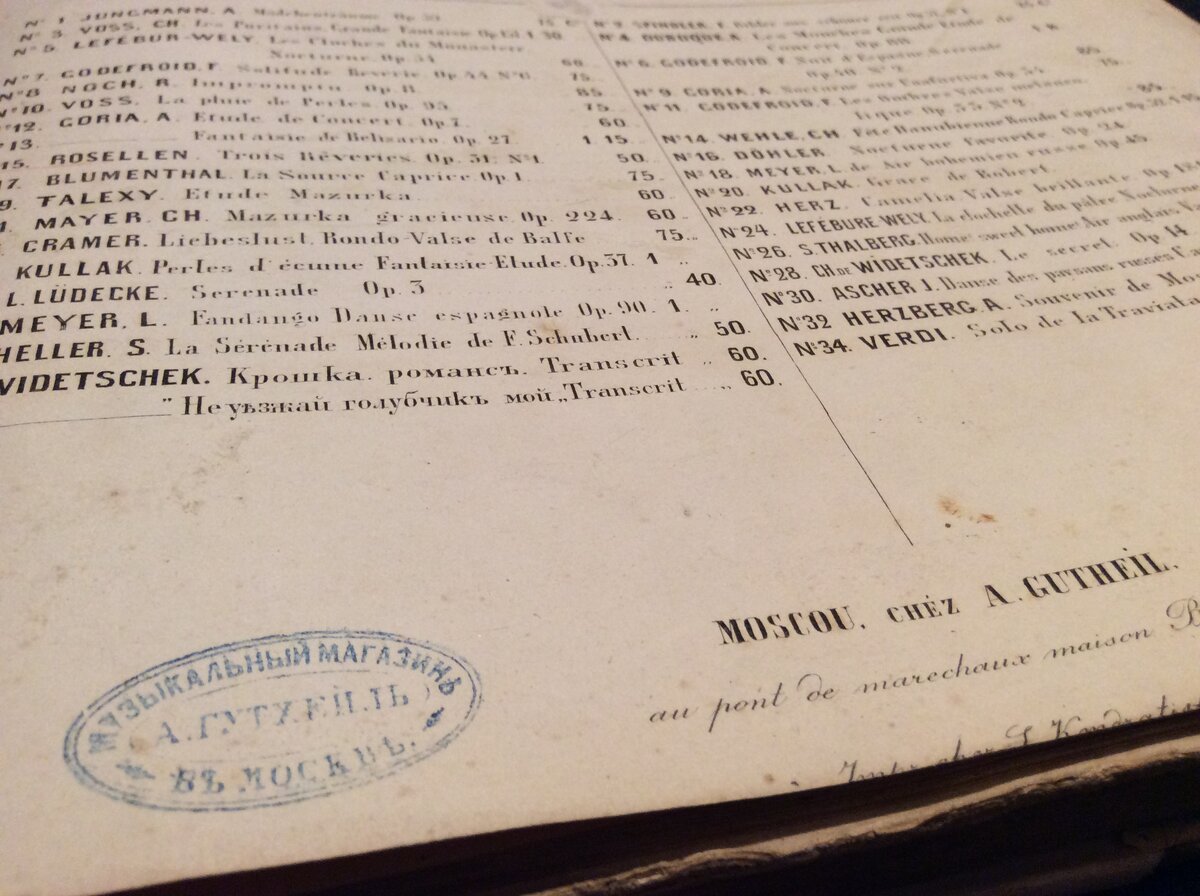 Nº 1 JUNGMANN, A. Mädchenträume Op.
Nº 3. VOSS, CH. Les Puritains, Grande Fantaisie Op. 1 30
Nº 5. LEFEBUR-WELY, Les Cloches du Monastère
Nocturne. Op. 54 60.
Nº 7. GODEFROID, F. Solitude Reverie. Op. 44. Nº 6. 75.
Nº 8 NOCH, R. Impromptu Op. 8. 85
Nº 10. VOSS. La pluie de Perles Op. 95. 75.
Nº 12. GORIA, A. Etude de Concert. Op. 7. 60.
Nº 13. Fantaisie de Belisario Op. 27. 1 15.
15. ROSELLEN. Trois Rêveries. Op. 31. Nº 1. 50.
17. BLUMENTHAL. La Source Caprice. Op. 1. 75.
9. TALEXY. Etude Mazurka 60.
MAYER, CH. Mazurka gracieuse. Op. 224. 60 „
CRAMER. Liebeslust. Rondo-Valse de Balfe 75. „
KULLAK. Perles d'écume Fantaisie-Etude. Op. 37. 1 „
L. LÜDECKE. Serenade Op. 3 „ 40.
MEYER, L. Fandango Danse espagnole Op. 90. 1. „
HELLER, S. La Sérénade Mélodie de F. Schubert. „ 50.
WIDETSCHEK. Крошка. романсъ. Transcrit „ 60.
" Не уѣзжай голубчикъ мой „Transcrit „ 60.
Nº 2. SPINDLER, F.
Nº 4. DUBUQUE A. Les Grande Etude de
Concert. Op.
Nº 6. GODEFROID, F. Nuit d'Espagne
Op. 40 Nº 2. 85.
Nº 9. GORIA, A. Nocturne Op. 54. 75.
Nº 11. GODEFROID, F. Les Valse
Op. 55. Nº 2. 85.
Nº 14. WEHLE, CH Fête Danubienne Rondo Caprice Op.
Nº 16. DÖHLER. Nocturne favorite. Op. 24.
Nº 18. MEYER, L. de Air bohemien russe Op. 45.
Nº 20. KULLAK. Grace de Robert.
Nº 22. HERZ. Camelia Valse brillante. Op.
Nº 24. LEFEBURE WELY. La clochette du pâtre Nocturne
Nº 26. S. THALBERG. Home! sweet home! Air anglais
Nº 28. CH. DE WIDETSCHEK. Le secret. Op. 14
Nº 30. ASCHER J. Danse des paysans russes
Nº 32 HERZBERG, A. Souvenir de Mos
Nº 34. VERDI. Solo de la Traviata
MOSCOU, CHÉZ A. GUTHEIL.
au pont de marechaux maison B
Impr. chez
МУЗЫКАЛЬНЫЙ МАГАЗИНЪ
А. ГУТХЕЙЛЬ
ВЪ МОСКВѢ.